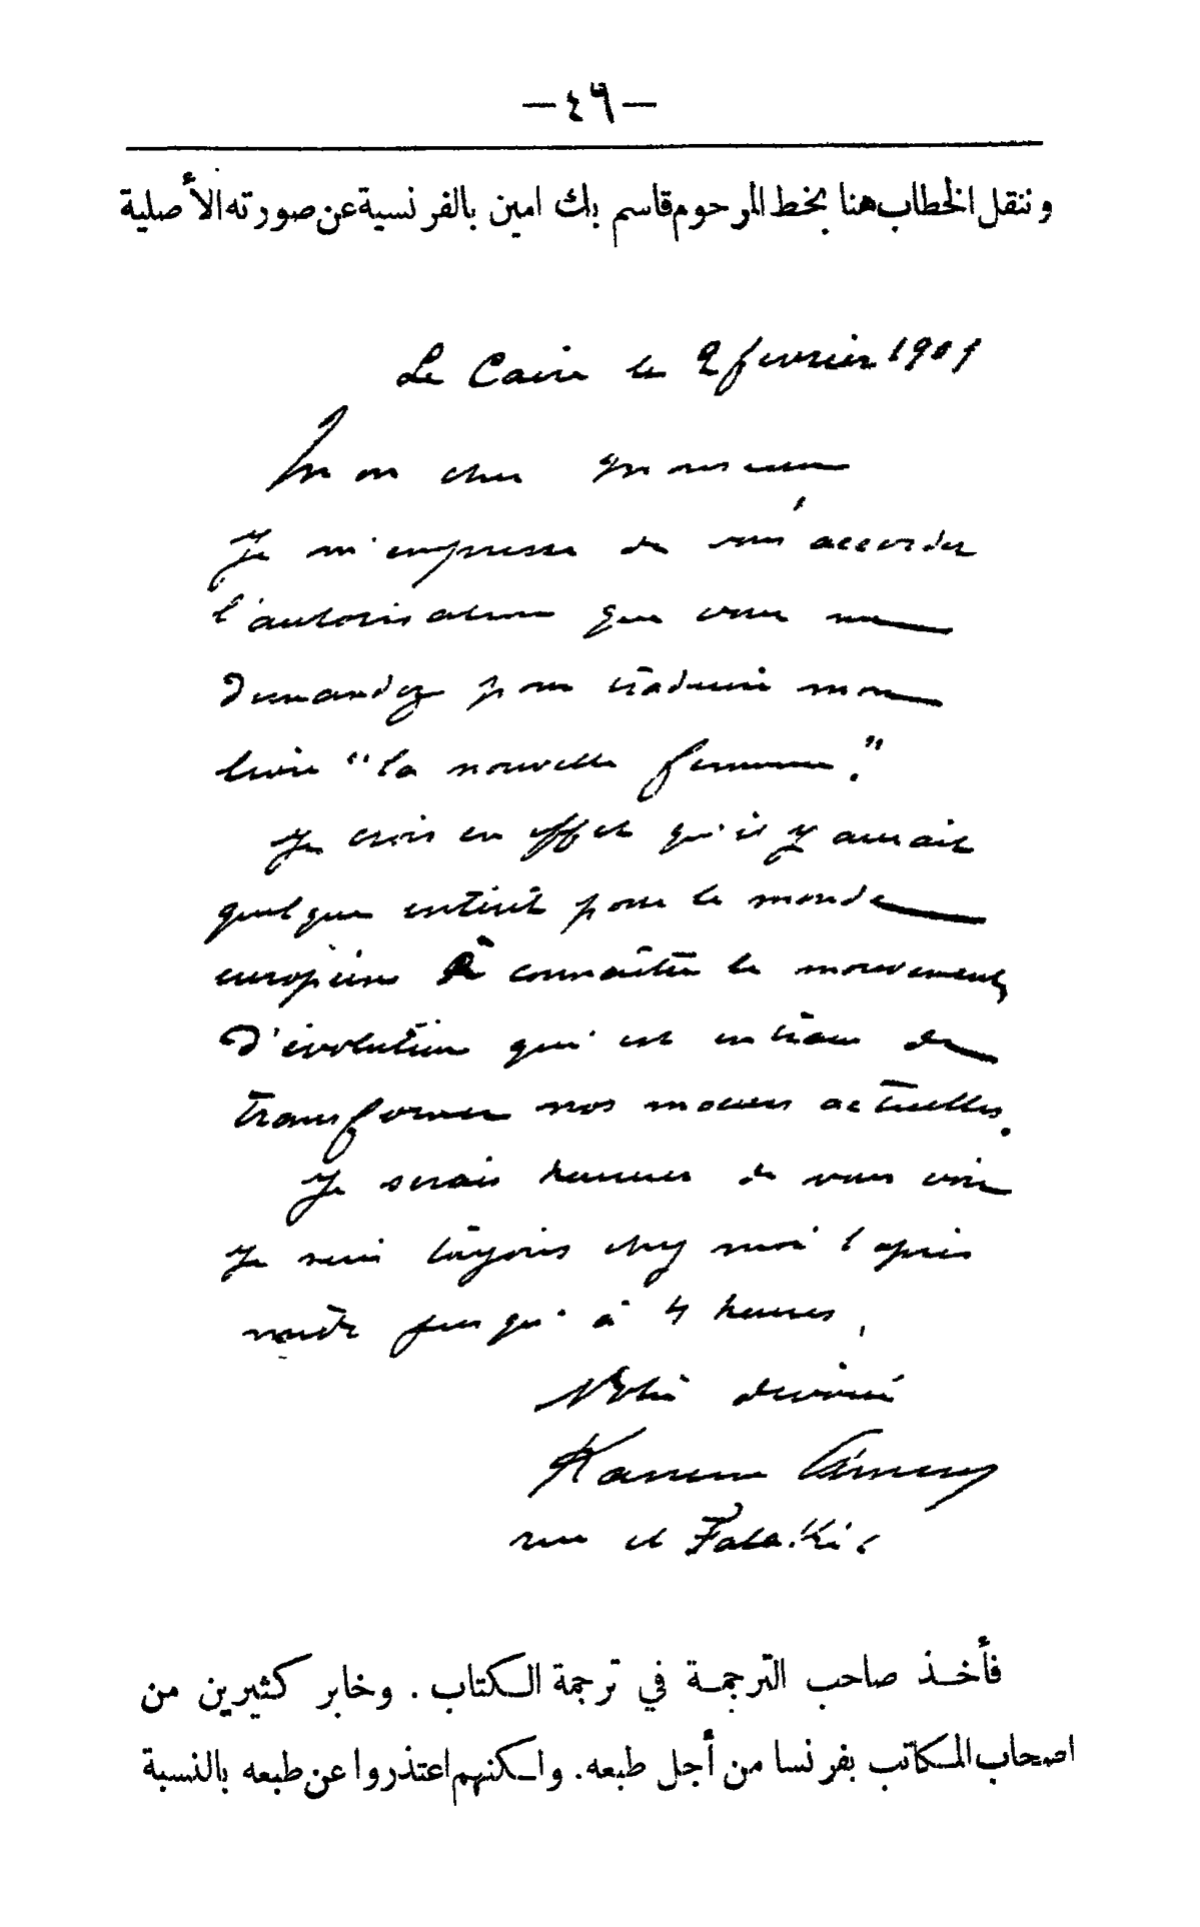 —٤٦—
وننقل الخطاب هنا بخط المرحوم قاسم بك امين بالفرنسية عن صورته الأصلية
Le Caire le 2 fevrier 1901
Mon cher Monsieur
Je m'empresse de vous accorder
l'autorisation que vous me
demandez pour traduire mon
livre "la nouvelle femme."
Je crois en effet qu'il y aurait
quelque intérêt pour le monde
européen à connaître le mouvement
d'évolution qui est en train de
transformer nos moeurs actuelles.
Je serais heureux de vous voir
Je suis toujours chez moi l'après
midi jusqu'à 4 heures,
Votre devoué
Kassem Amin
rue el Falaki
فأخذ صاحب الترجمة في ترجمة الكتاب. وخابر كثيرين من
اصحاب المكاتب بفرنسا من أجل طبعه. ولكنهم اعتذروا عن طبعه بالنسبة